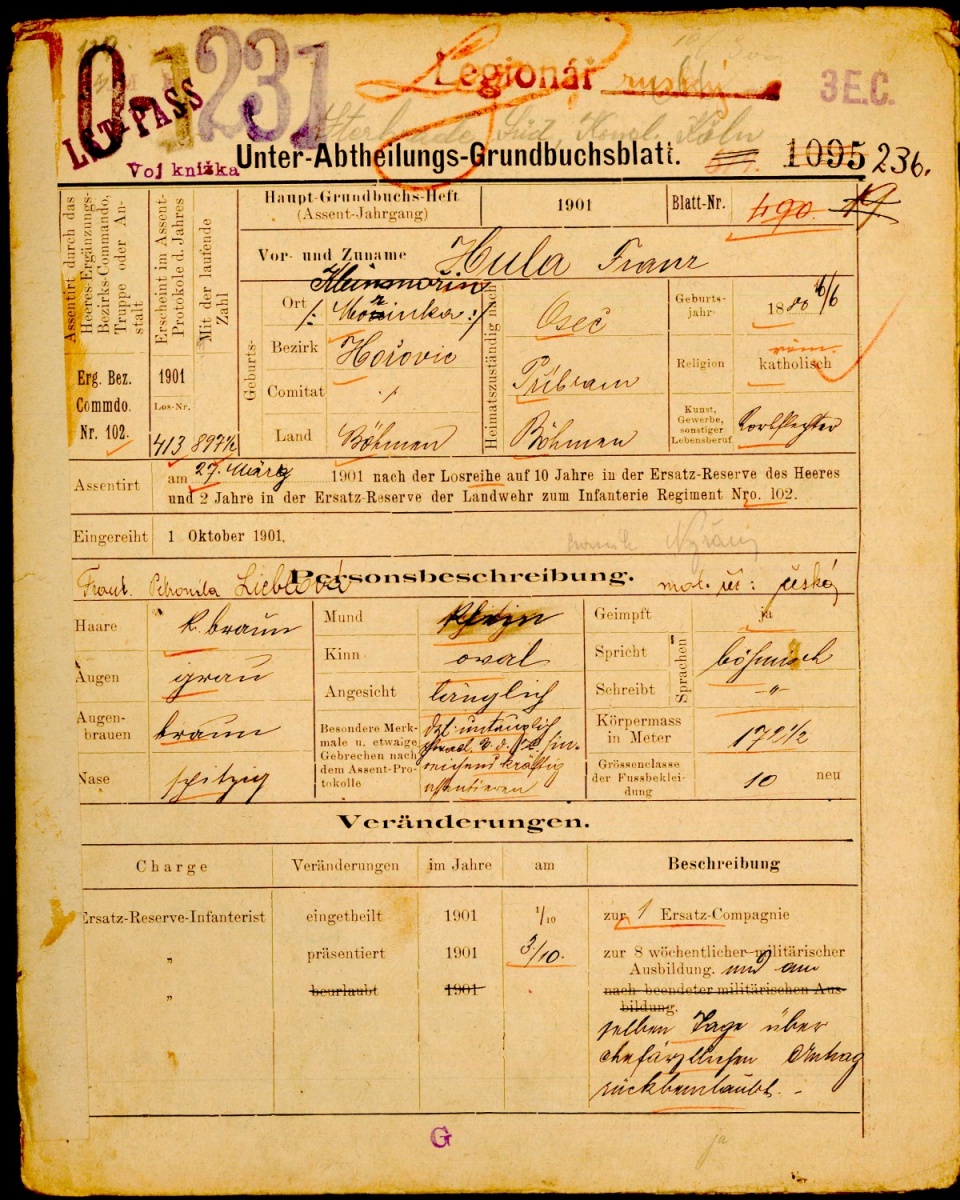 1231
Legionář ruský
3 E.C.
LET-PASS
Sterkrade Süd, Konsl. Köln
Voj knížka
Unter-Abtheilungs-Grundbuchsblatt. 1095 236.
Haupt-Grundbuchs-Heft
(Assent-Jahrgang)
1901
Blatt-Nr. 490. 19
Assentirt durch das Heeres-Ergänzungs-Bezirks-Commando, Truppe oder Anstalt
Erscheint im Assent-Protokole d. Jahres
Mit der laufende Zahl
Erg. Bez. Commdo. Nr. 102.
1901
Los-Nr.
413
897 1/2
Vor- und Zuname Hula Franz
Geburts-
Ort Kleinmořin
/: Mořinka :/
Bezirk Hořovic
Comitat ./.
Land Böhmen
Heimatszuständig nach
Oseč
Přibram
Böhmen
Geburts-jahr 1880 6/6
Religion röm. katholisch
Kunst, Gewerbe, sonstiger Lebensberuf Korbflechter
Assentirt am 27. März 1901 nach der Losreihe auf 10 Jahre in der Ersatz-Reserve des Heeres
und 2 Jahre in der Ersatz-Reserve der Landwehr zum Infanterie Regiment Nro. 102.
Eingereiht 1 Oktober 1901.
Personsbeschreibung.
Frant. Petronila Lieblová
mat. ř: česká
Haare k. braun
Augen grau
Augen-brauen braun
Nase spitzig
Mund klein
Kinn oval
Angesicht länglich
Besondere Merk-
male u. etwaige
Gebrechen nach
dem Assent-Pro-
tokolle
dzt. untauglich
hin-
reichend kräftig
assentieren
Geimpft ja
Sprachen
Spricht böhmisch
Schreibt -"-
Körpermass in Meter 172 1/2
Grössenclasse der Fussbeklei-dung 10 neu
Veränderungen.
Charge Veränderungen im Jahre am Beschreibung
Ersatz-Reserve-Infanterist eingetheilt 1901 1/10 zur 1 Ersatz-Compagnie
„ präsentiert 1901 3/10. zur 8 wöchentlicher militärischer
Ausbildung. und am
„ beurlaubt 1901 nach beendeter militärischen Aus-
bildung.
selben Tage über
chefärztlichen Antrag
rückbeurlaubt. -
G
ja